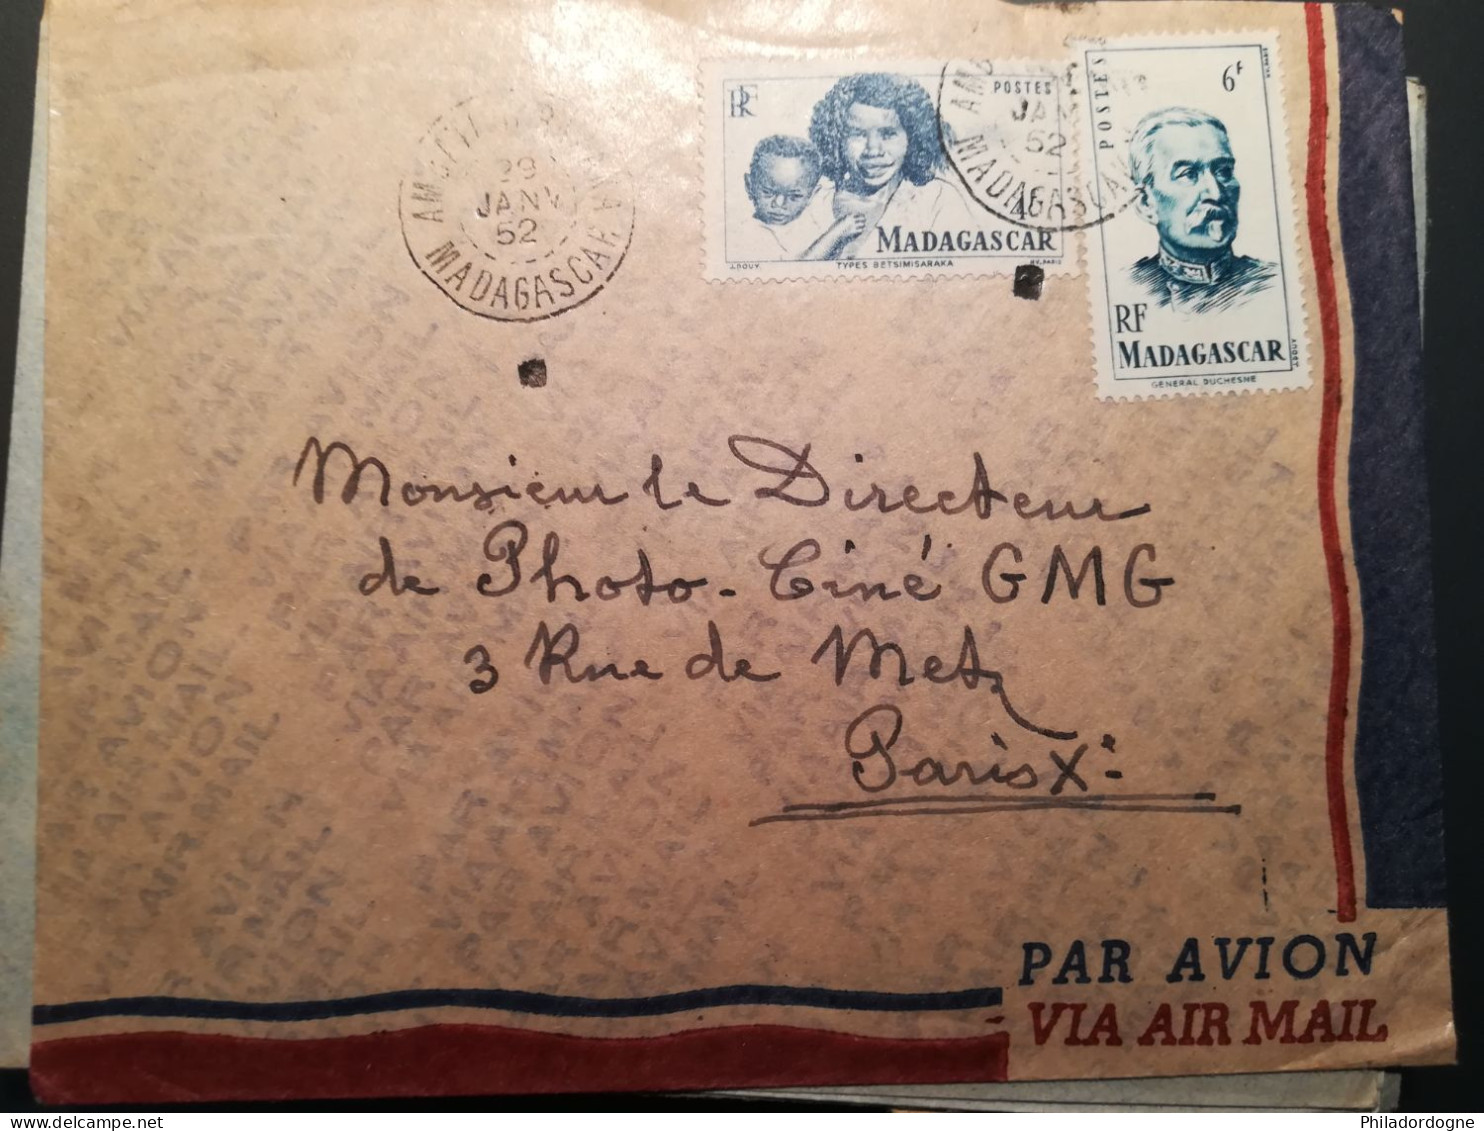 29
JANV
52
MADAGASCAR
RF
POSTES
4F
MADAGASCAR
J.DOUY
TYPES BETSIMISARAKA
HV.PARIS
JA
52
MADAGASCAR
POSTES
6F
RF
MADAGASCAR
GÉNÉRAL DUCHESNE
Monsieur le Directeur
de Photo-Ciné GMG
3 Rue de Metz
Paris Xè
PAR AVION
VIA AIR MAIL
Philadordogne